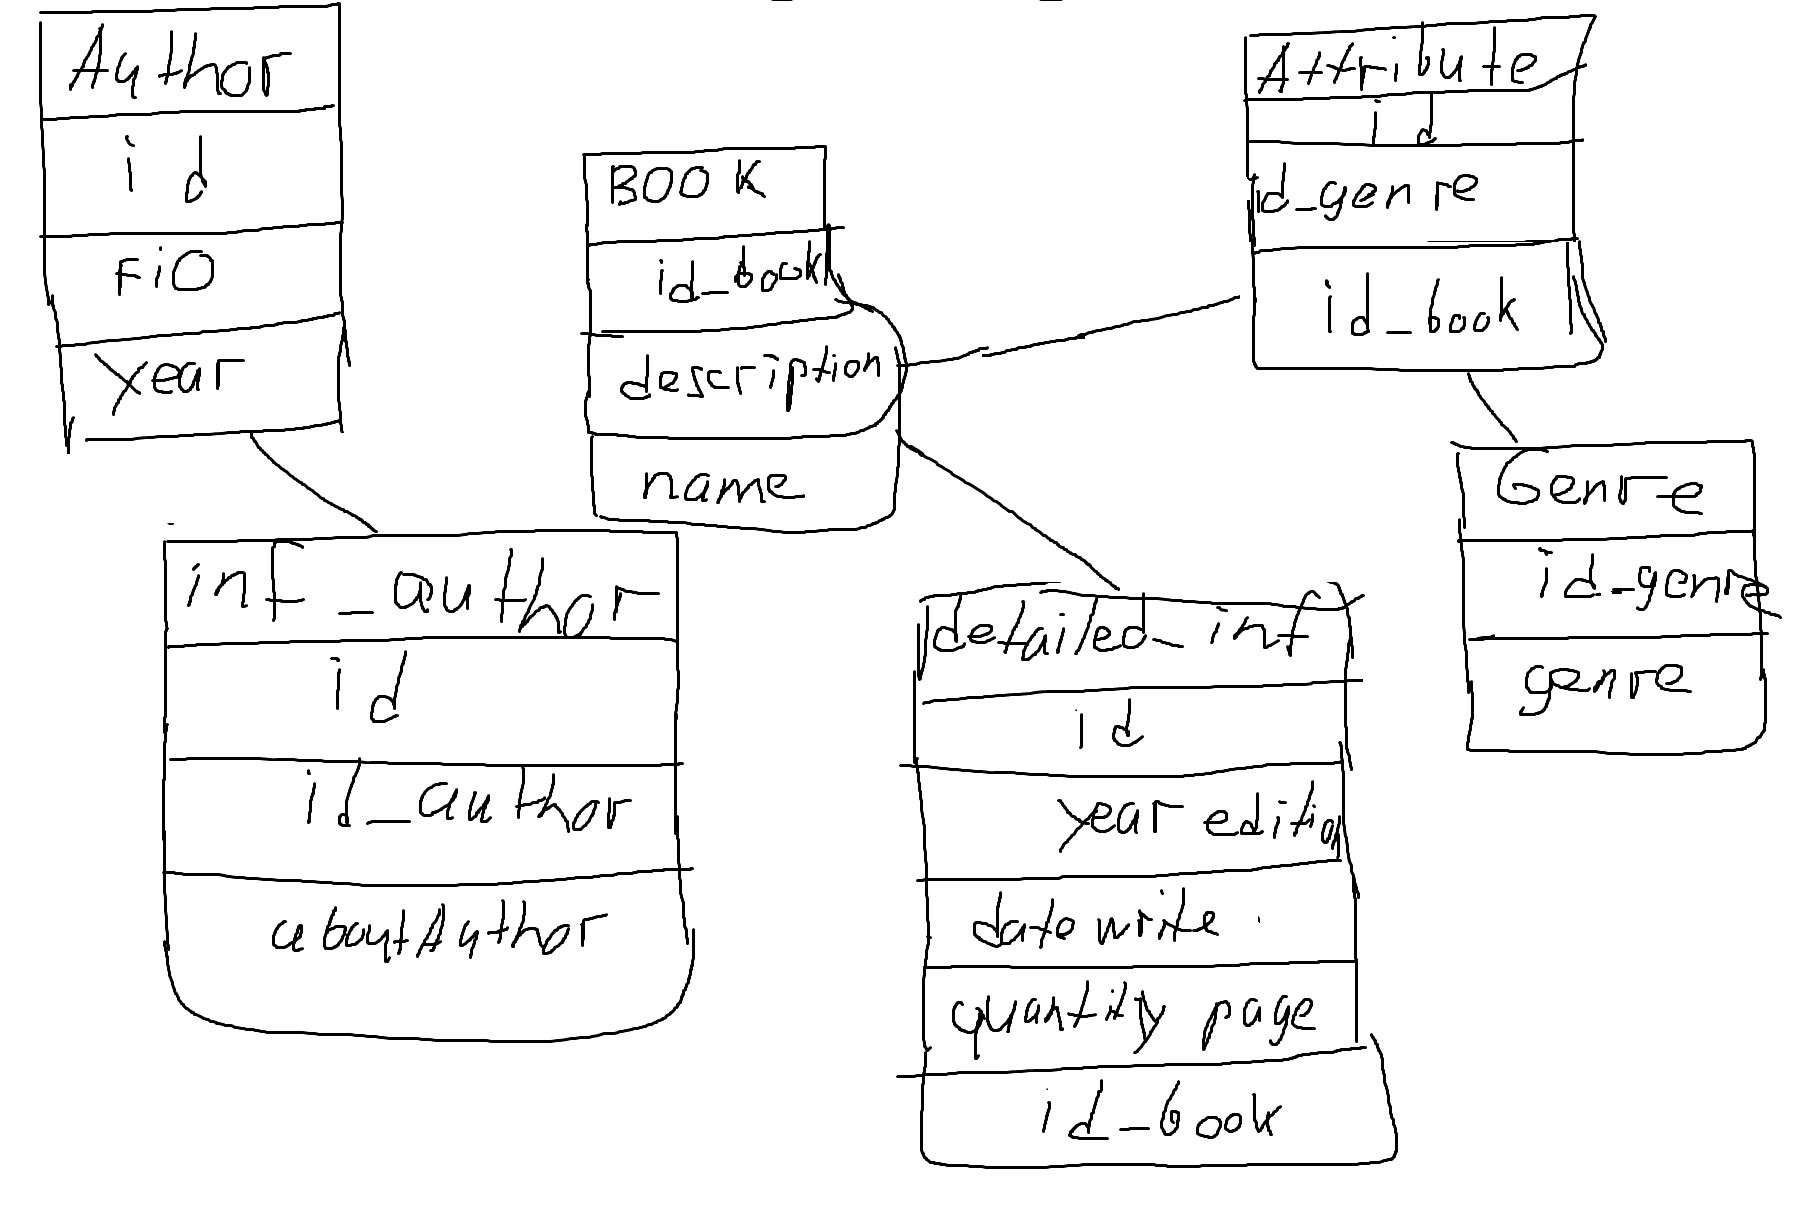 Author
id
FiO
year
BOOK
id_book
description
name
Attribute
id
id_genre
id_book
Genre
id_genre
genre
inf_author
id
id_author
aboutAuthor
detailed_inf
id
year edition
date write
quantity page
id_book